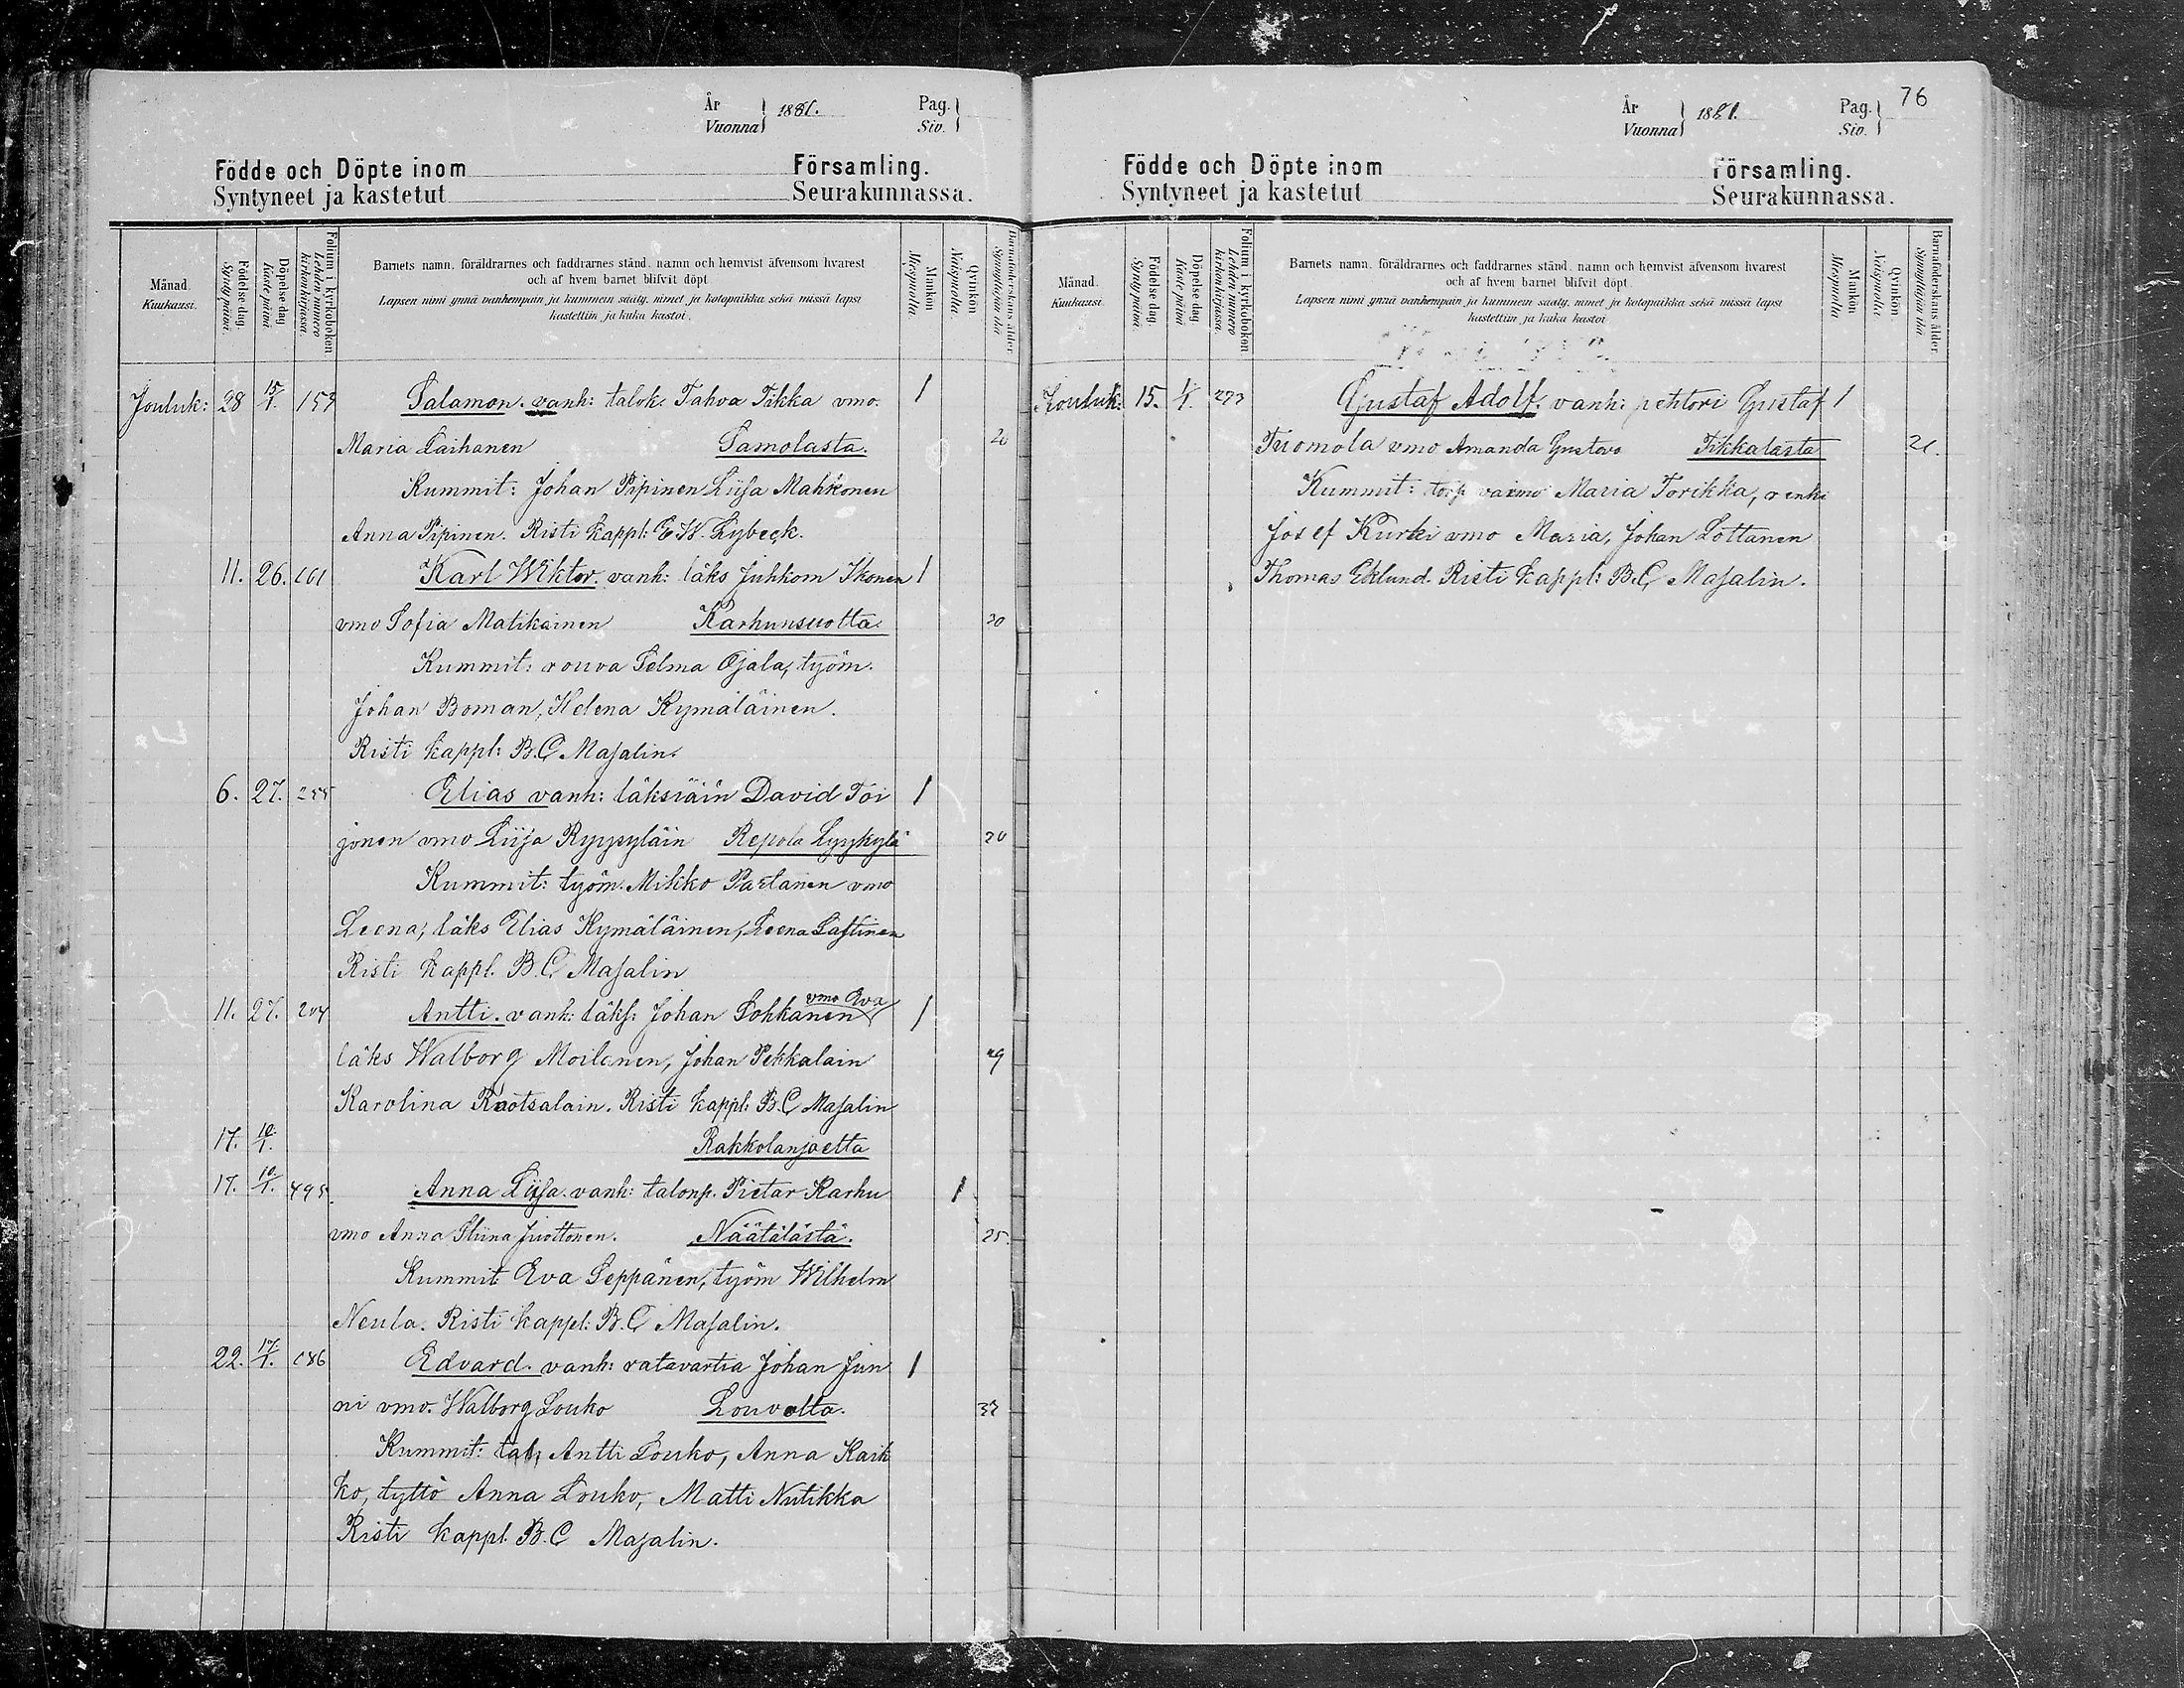 År
Vuonna 1881.
Pag.
Siv.
Födde och Döpte inom Församling.
Syntyneet ja kastetut Seurakunnassa.
Månad. Kuukausi.
Födelsedag. Syntypäivä.
Döpelsedag. Kastepäivä.
Folium i kyrkoboken Lehden numero kirkonkirjassa.
Barnets namn, föräldrarnes och faddrarnes stånd, namn och hemvist äfvensom hvarest
och af hvem barnet blifvit döpt.
Lapsen nimi ynnä vanhempain ja kummein sääty, nimet ja kotopaikka sekä missä lapsi
kastettiin ja kuka kastoi.
Mankön Miespuolia.
Qvinkön Naispuolia.
Barnaföderskans ålder. Synnyttäjän ikä.
Jouluk: 28 15/1. 157 Salamon. vanh: talok. Tahva Tikka vmo. 1
Maria Laihanen Samolasta. 20
Kummit: Johan Pipinen Liisa Mahkonen
Anna Pipinen. Risti kappl: E W. Lybeck.
11. 26. 161 Karl Wiktor. vanh: läks Juhkom Ikonen 1
vmo Sofia Matikainen Karhunsuolta. 30
Kummit: rouva Selma Ojala, työm.
Johan Boman, Helena Kymäläinen.
Risti kappl: B.C Masalin.
6. 27. 255 Elias vanh: läksiäin David Toi 1
jonen vmo Liisa Ryysyläin Repola Lyyykylä 20
Kummit: työm. Mikko Partanen vmo
Leena, läks Elias Kymäläinen, Leena Lastinen
Risti kappl. B.C. Masalin
11. 27. 204 Antti. vanh: läks: Johan Sohkanen vmo Eva 1
läks Walborg Moilanen, Johan Pekkalain 29
Karolina Ruotsalain. Risti kappl: B.C Masalin
17. 10/1. Rakkolanjoelta
17. 10/1. 495. Anna Liisa. vanh: talonp. Pietar Karhu 1
vmo Anna Stiina Juottonen. Näätälästä. 25.
Kummit Eva Seppänen, työm Wilhelm
Neula. Risti kappl: B.C Masalin.
22. 17/1. 186 Edvard. vanh: ratavartia Johan Jun 1
ni vmo. Walborg Louko Louvolta. 37
Kummit: tal: Antti Louko, Anna Kark
ko, tyttö Anna Louko, Matti Nutikka
Risti kappl. B.C Masalin.
76
År
Vuonna 1881.
Pag.
Siv.
Födde och Döpte inom Församling.
Syntyneet ja kastetut Seurakunnassa.
Månad. Kuukausi.
Födelsedag. Syntypäivä.
Döpelsedag. Kastepäivä.
Folium i kyrkoboken Lehden numero kirkonkirjassa.
Barnets namn, föräldrarnes och faddrarnes stånd, namn och hemvist äfvensom hvarest
och af hvem barnet blifvit döpt.
Lapsen nimi ynnä vanhempain ja kummein sääty, nimet ja kotopaikka sekä missä lapsi
kastettiin ja kuka kastoi
Mankön Miespuolia
Qvinkön Naispuolia.
Barnaföderskans ålder. Synnyttäjän ikä
Jouluk: 15. 1/1. 273 Gustaf Adolf. vanh: pehtori Gustaf 1
Tuomola vmo Amanda Gustava Tikkalasta 21.
Kummit: torp vaimo Maria Torikka, renki
Josef Kurki vmo Maria, Johan Lottanen
Thomas Eklund. Risti kappl: B.C Masalin.